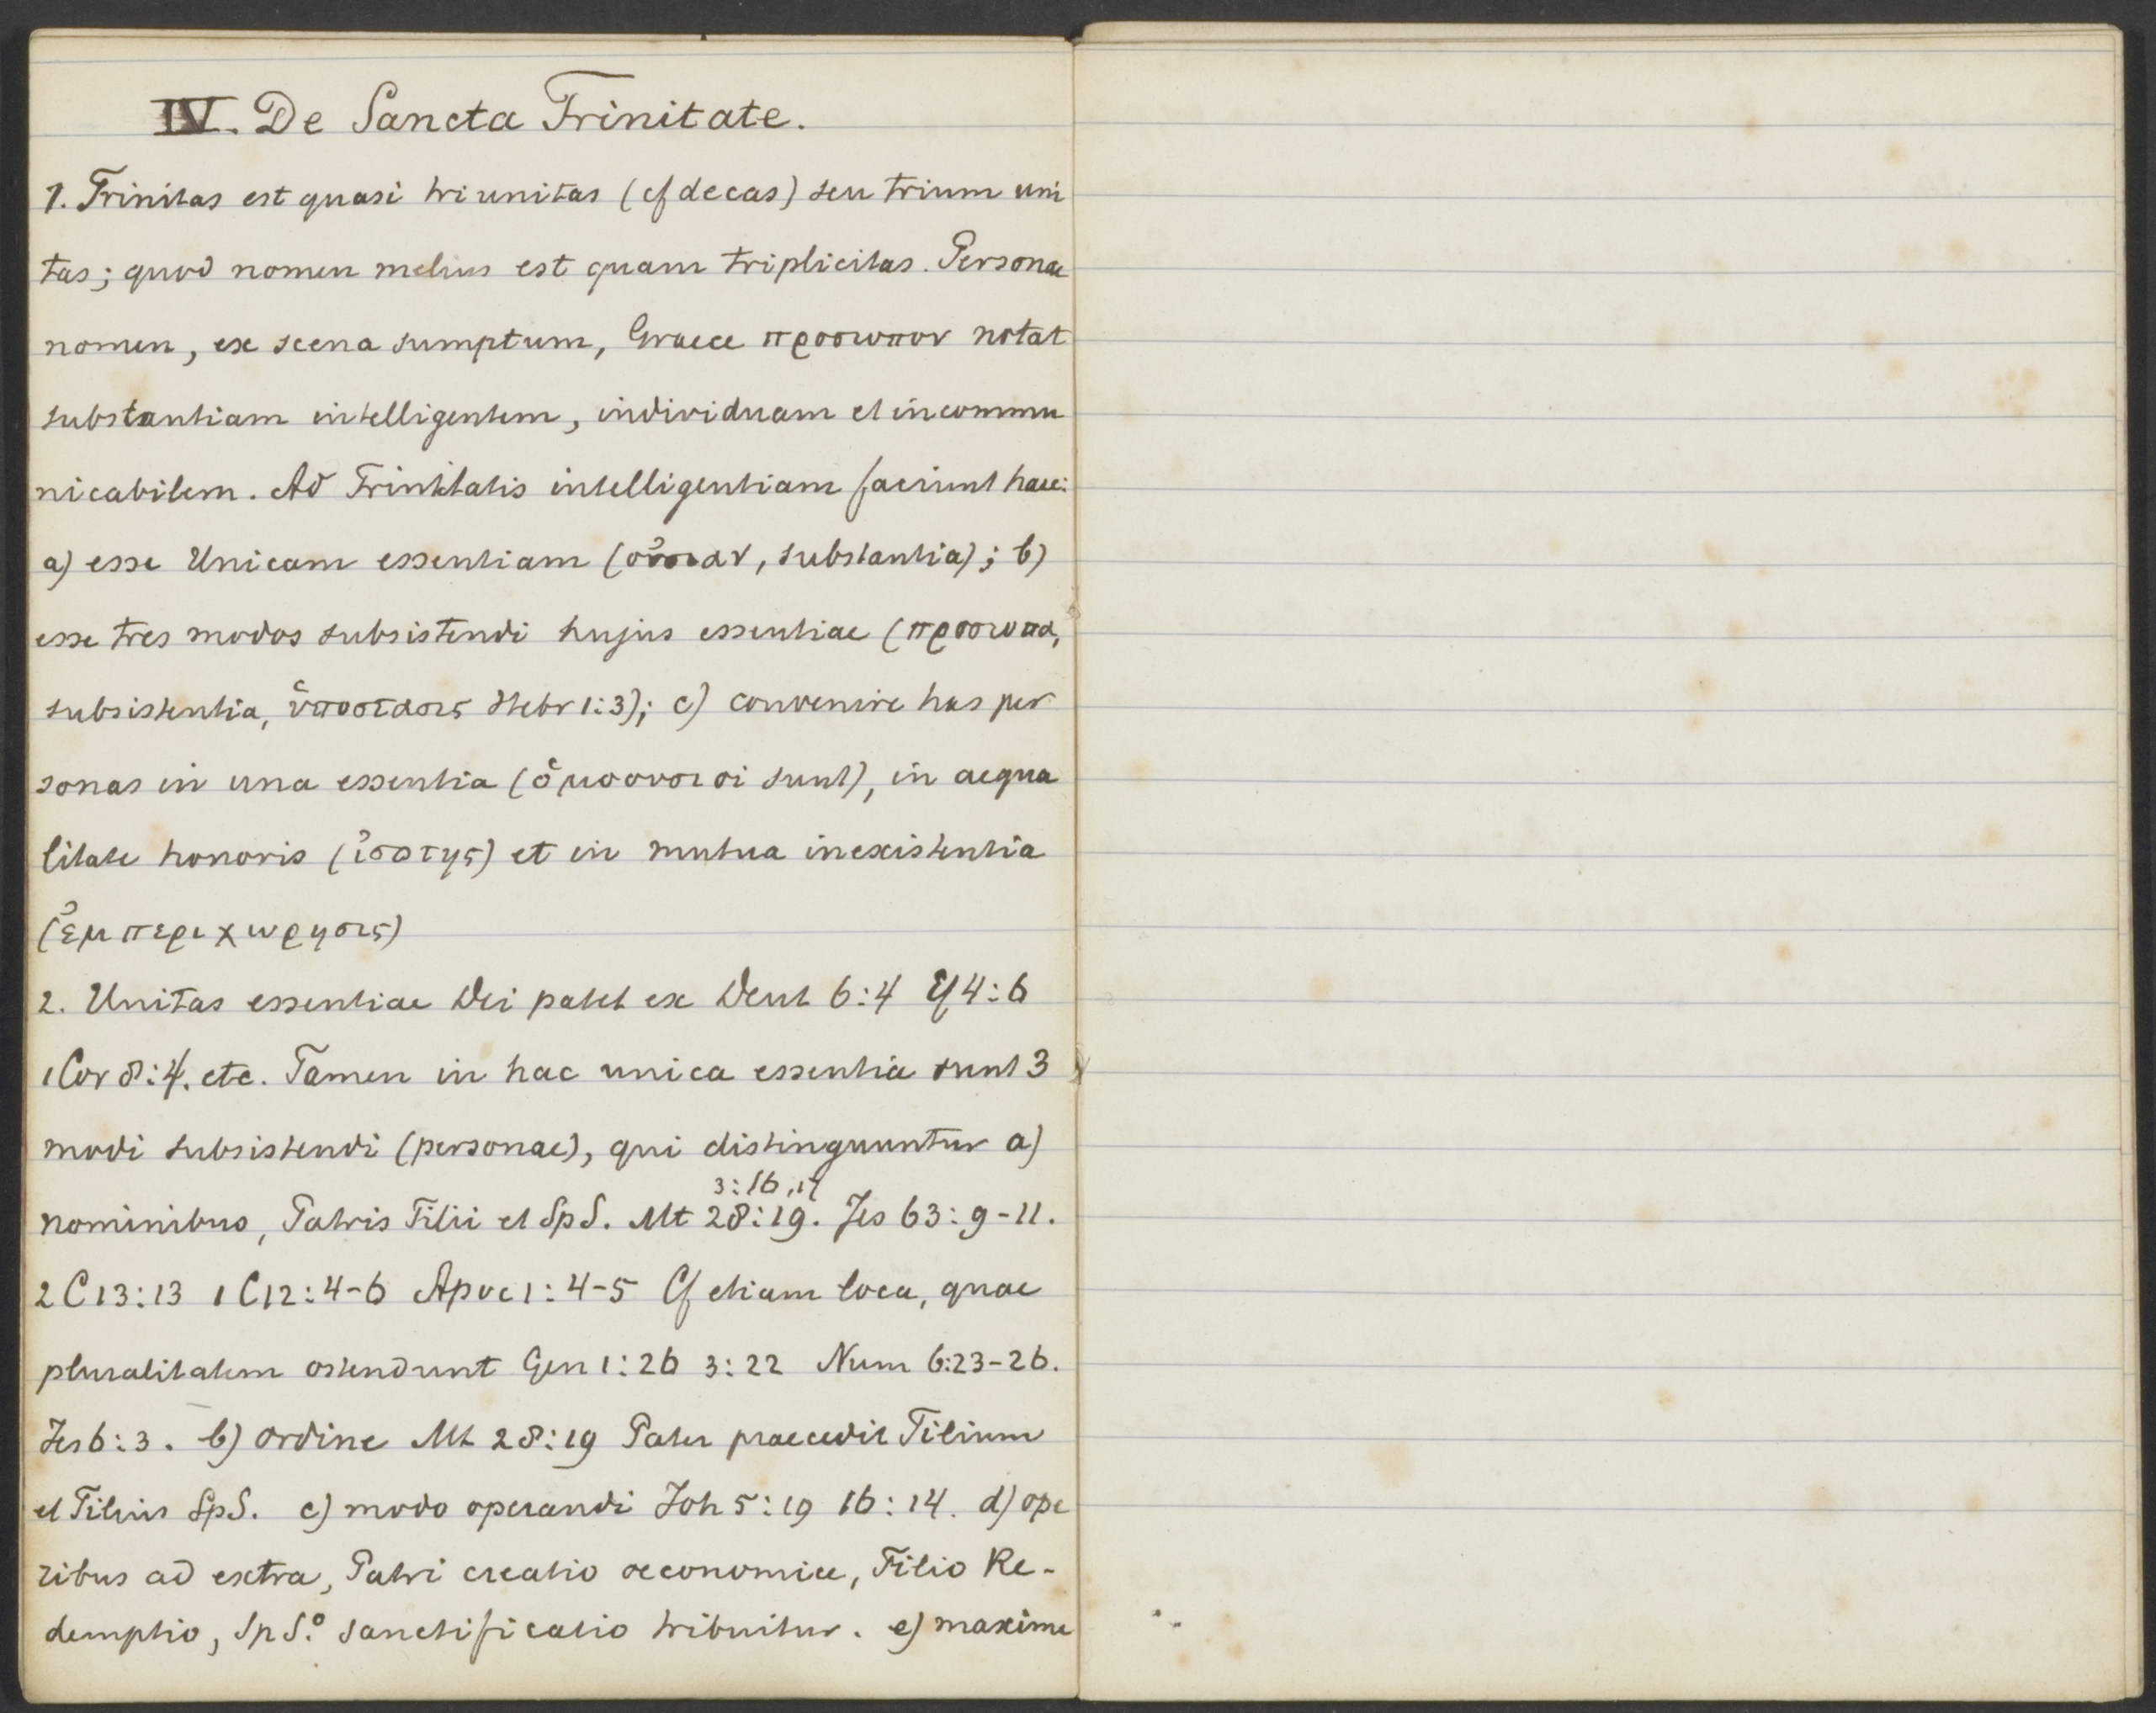 IV. De Sancta Trinitate.
1. Trinitas est quasi triunitas (cf decas) seu trium uni
tas; quod nomen melius est quam triplicitas. Personae
nomen, ex scena sumptum, Graece προσωπον notat
substantiam intelligentem, individuam et incommu
nicabilem. Ad Trinitatis intelligentiam faciunt haec:
a) esse Unicam essentiam (οὐσιαν, substantia); b)
esse tres modos subsistendi hujus essentiae (προσωπα,
subsistentia, ὑποστασις Hebr 1:3); c) convenire has per
sonas in una essentia (ὁμοουσιοι sunt), in aequa
litate honoris (ἰσοτης) et in mutua inexistentia
(ἐμπεριχωρησις)
2. Unitas essentiae Dei patet ex Deut 6:4 Ef 4:6
1 Cor 8:4. etc. Tamen in hac unica essentia sunt 3
modi subsistendi (personae), qui distinguuntur a)
3:16,17
nominibus, Patris Filii et SpS. Mt 28:19. Jes 63:9-11.
2 C 13:13 1 C 12:4-6 Apoc 1:4-5 Cf etiam loca, quae
pluralitatem ostendunt Gen 1:26 3:22 Num 6:23-26.
Jes 6:3. b) ordine Mt 28:19 Pater praecedit Filium
et Filius SpS. c) modo operandi Joh 5:19 16:14. d) ope
ribus ad extra, Patri creatio oeconomice, Filio Re-
demptio, SpS.º sanctificatio tribuitur. e) maxime